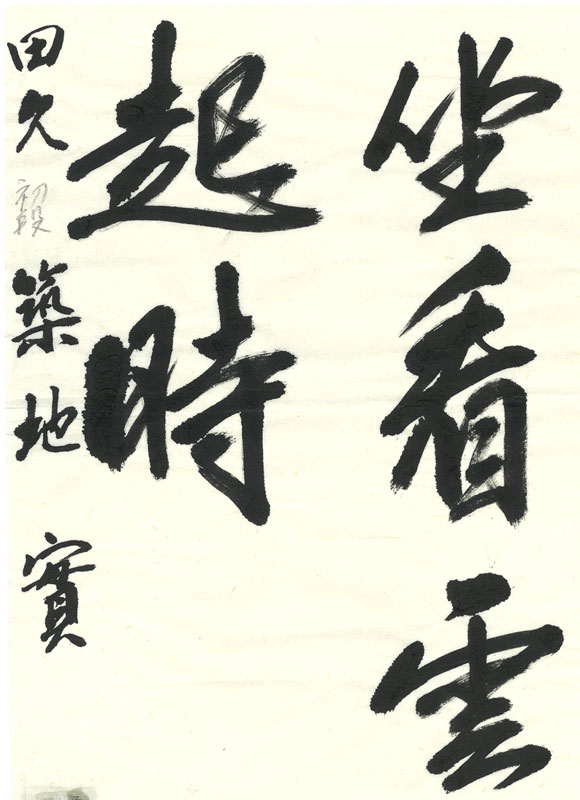 坐看雲
起時
田久 初段 築地 實